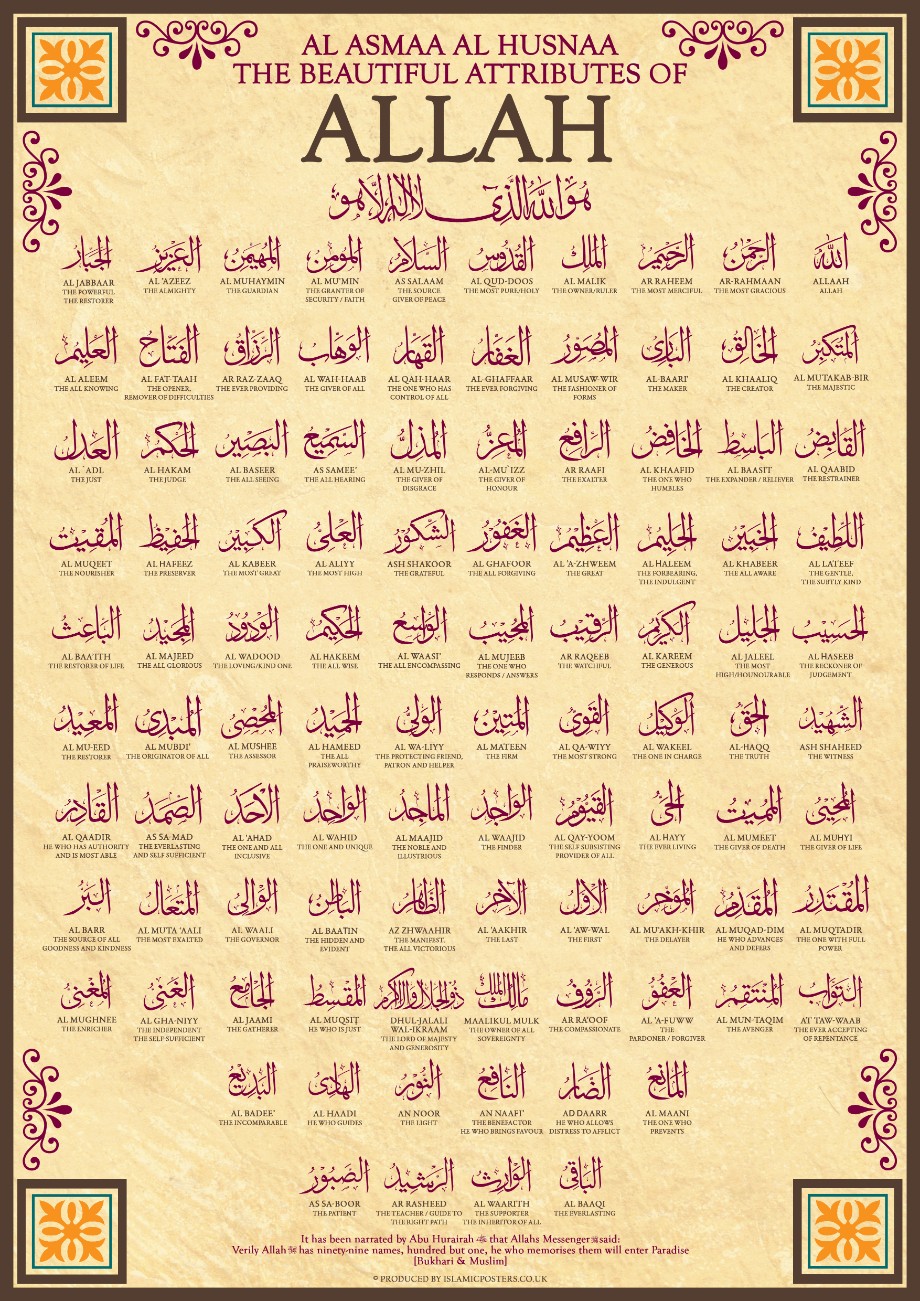 AL ASMAA AL HUSNAA
THE BEAUTIFUL ATTRIBUTES OF
ALLAH
هُوَ اللهُ الَّذِي لَا إِلٰهَ إِلَّا هُوَ
الله
ALLAAH
ALLAH
الرحمن
AR-RAHMAAN
THE MOST GRACIOUS
الرحيم
AR RAHEEM
THE MOST MERCIFUL
الملك
AL MALIK
THE OWNER/RULER
القدوس
AL QUD-DOOS
THE MOST PURE/HOLY
السلام
AS SALAAM
THE SOURCE
GIVER OF PEACE
المؤمن
AL MU'MIN
THE GRANTER OF
SECURITY / FAITH
المهيمن
AL MUHAYMIN
THE GUARDIAN
العزيز
AL 'AZEEZ
THE ALMIGHTY
الجبار
AL JABBAAR
THE POWERFUL
THE RESTORER
المتكبر
AL MUTAKAB-BIR
THE MAJESTIC
الخالق
AL KHAALIQ
THE CREATOR
البارئ
AL-BAARI'
THE MAKER
المصور
AL MUSAW-WIR
THE FASHIONER OF
FORMS
الغفار
AL-GHAFFAAR
THE EVER FORGIVING
القهار
AL QAH-HAAR
THE ONE WHO HAS
CONTROL OF ALL
الوهاب
AL WAH-HAAB
THE GIVER OF ALL
الرزاق
AR RAZ-ZAAQ
THE EVER PROVIDING
الفتاح
AL FAT-TAAH
THE OPENER,
REMOVER OF DIFFICULTIES
العليم
AL ALEEM
THE ALL KNOWING
القابض
AL QAABID
THE RESTRAINER
الباسط
AL BAASIT
THE EXPANDER / RELIEVER
الخافض
AL KHAAFID
THE ONE WHO
HUMBLES
الرافع
AR RAAFI
THE EXALTER
المعز
AL-MU`IZZ
THE GIVER OF
HONOUR
المذل
AL MU-ZHIL
THE GIVER OF
DISGRACE
السميع
AS SAMEE'
THE ALL HEARING
البصير
AL BASEER
THE ALL SEEING
الحكم
AL HAKAM
THE JUDGE
العدل
AL `ADL
THE JUST
اللطيف
AL LATEEF
THE GENTLE,
THE SUBTLY KIND
الخبير
AL KHABEER
THE ALL AWARE
الحليم
AL HALEEM
THE FORBEARING,
THE INDULGENT
العظيم
AL 'A-ZHWEEM
THE GREAT
الغفور
AL GHAFOOR
THE ALL FORGIVING
الشكور
ASH SHAKOOR
THE GRATEFUL
العلي
AL ALIYY
THE MOST HIGH
الكبير
AL KABEER
THE MOST GREAT
الحفيظ
AL HAFEEZ
THE PRESERVER
المقيت
AL MUQEET
THE NOURISHER
الحسيب
AL HASEEB
THE RECKONER OF
JUDGEMENT
الجليل
AL JALEEL
THE MOST
HIGH/HOUNOURABLE
الكريم
AL KAREEM
THE GENEROUS
الرقيب
AR RAQEEB
THE WATCHFUL
المجيب
AL MUJEEB
THE ONE WHO
RESPONDS / ANSWERS
الواسع
AL WAASI'
THE ALL ENCOMPASSING
الحكيم
AL HAKEEM
THE ALL WISE
الودود
AL WADOOD
THE LOVING/KIND ONE
المجيد
AL MAJEED
THE ALL GLORIOUS
الباعث
AL BAA'ITH
THE RESTORER OF LIFE
الشهيد
ASH SHAHEED
THE WITNESS
الحق
AL-HAQQ
THE TRUTH
الوكيل
AL WAKEEL
THE ONE IN CHARGE
القوي
AL QA-WIYY
THE MOST STRONG
المتين
AL MATEEN
THE FIRM
الولي
AL WA-LIYY
THE PROTECTING FRIEND,
PATRON AND HELPER
الحميد
AL HAMEED
THE ALL
PRAISEWORTHY
المحصي
AL MUSHEE
THE ASSESSOR
المبدئ
AL MUBDI'
THE ORIGINATOR OF ALL
المعيد
AL MU-EED
THE RESTORER
المحيي
AL MUHYI
THE GIVER OF LIFE
المميت
AL MUMEET
THE GIVER OF DEATH
الحي
AL HAYY
THE EVER LIVING
القيوم
AL QAY-YOOM
THE SELF SUBSISTING
PROVIDER OF ALL
الواجد
AL WAAJID
THE FINDER
الماجد
AL MAAJID
THE NOBLE AND
ILLUSTRIOUS
الواحد
AL WAHID
THE ONE AND UNIQUE
الاحد
AL 'AHAD
THE ONE AND ALL
INCLUSIVE
الصمد
AS SA-MAD
THE EVERLASTING
AND SELF SUFFICIENT
القادر
AL QAADIR
HE WHO HAS AUTHORITY
AND IS MOST ABLE
المقتدر
AL MUQTADIR
THE ONE WITH FULL
POWER
المقدم
AL MUQAD-DIM
HE WHO ADVANCES
AND DEFERS
المؤخر
AL MU'AKH-KHIR
THE DELAYER
الاول
AL 'AW-WAL
THE FIRST
الآخر
AL 'AAKHIR
THE LAST
الظاهر
AZ ZHWAAHIR
THE MANIFEST,
THE ALL VICTORIOUS
الباطن
AL BAATIN
THE HIDDEN AND
EVIDENT
الوالي
AL WAALI
THE GOVERNOR
المتعال
AL MUTA 'AALI
THE MOST EXALTED
البر
AL BARR
THE SOURCE OF ALL
GOODNESS AND KINDNESS
التواب
AT TAW-WAAB
THE EVER ACCEPTING
OF REPENTANCE
المنتقم
AL MUN-TAQIM
THE AVENGER
العفو
AL 'A-FUWW
THE
PARDONER / FORGIVER
الرؤف
AR RA'OOF
THE COMPASSIONATE
مالك الملك
MAALIKUL MULK
THE OWNER OF ALL
SOVEREIGNTY
ذوالجلال والاكرام
DHUL-JALALI
WAL-IKRAAM
THE LORD OF MAJESTY
AND GENEROSITY
المقسط
AL MUQSIT
HE WHO IS JUST
الجامع
AL JAAMI
THE GATHERER
الغني
AL GHA-NIYY
THE INDEPENDENT
THE SELF SUFFICIENT
المغني
AL MUGHNEE
THE ENRICHER
المانع
AL MAANI
THE ONE WHO
PREVENTS
الضار
AD DAARR
HE WHO ALLOWS
DISTRESS TO AFFLICT
النافع
AN NAAFI'
THE BENEFACTOR
HE WHO BRINGS FAVOUR
النور
AN NOOR
THE LIGHT
الهادي
AL HAADI
HE WHO GUIDES
البديع
AL BADEE'
THE INCOMPARABLE
الباقي
AL BAAQI
THE EVERLASTING
الوارث
AL WAARITH
THE SUPPORTER
THE INHERITOR OF ALL
الرشيد
AR RASHEED
THE TEACHER / GUIDE TO
THE RIGHT PATH
الصبور
AS SA-BOOR
THE PATIENT
It has been narrated by Abu Hurairah that Allahs Messenger ﷺ said:
Verily Allah has ninety-nine names, hundred but one, he who memorises them will enter Paradise
[Bukhari & Muslim]
© PRODUCED BY ISLAMICPOSTERS.CO.UK